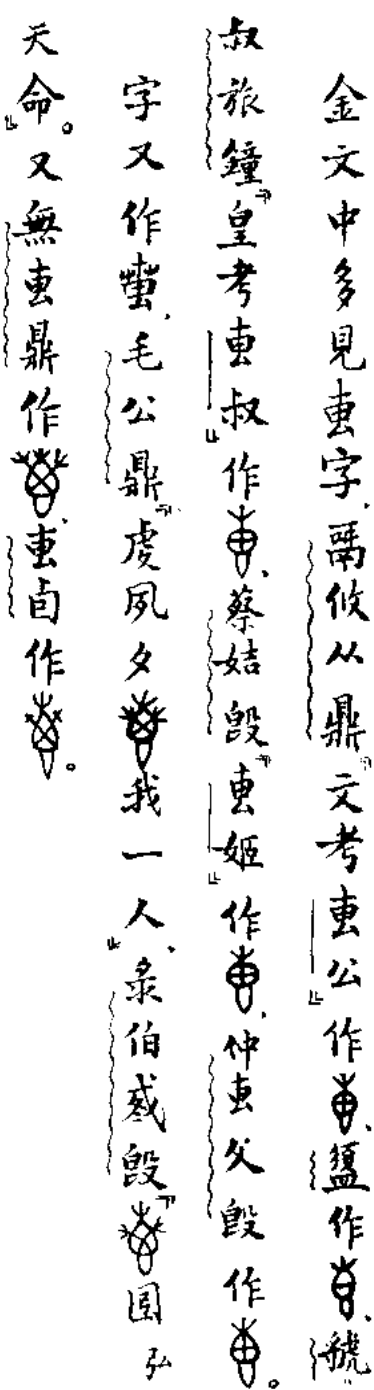 金文中多見叀字、攸从鼎「文考叀公」作、盨作、虢
叔旅鐘「皇考叀叔」作、蔡姞𣪘「叀姬」作、仲叀父𣪘作。
字又作、毛公鼎「虔夙夕我一人」、彔伯𣪘「圅弘
天命」。又無叀鼎作、叀卣作。